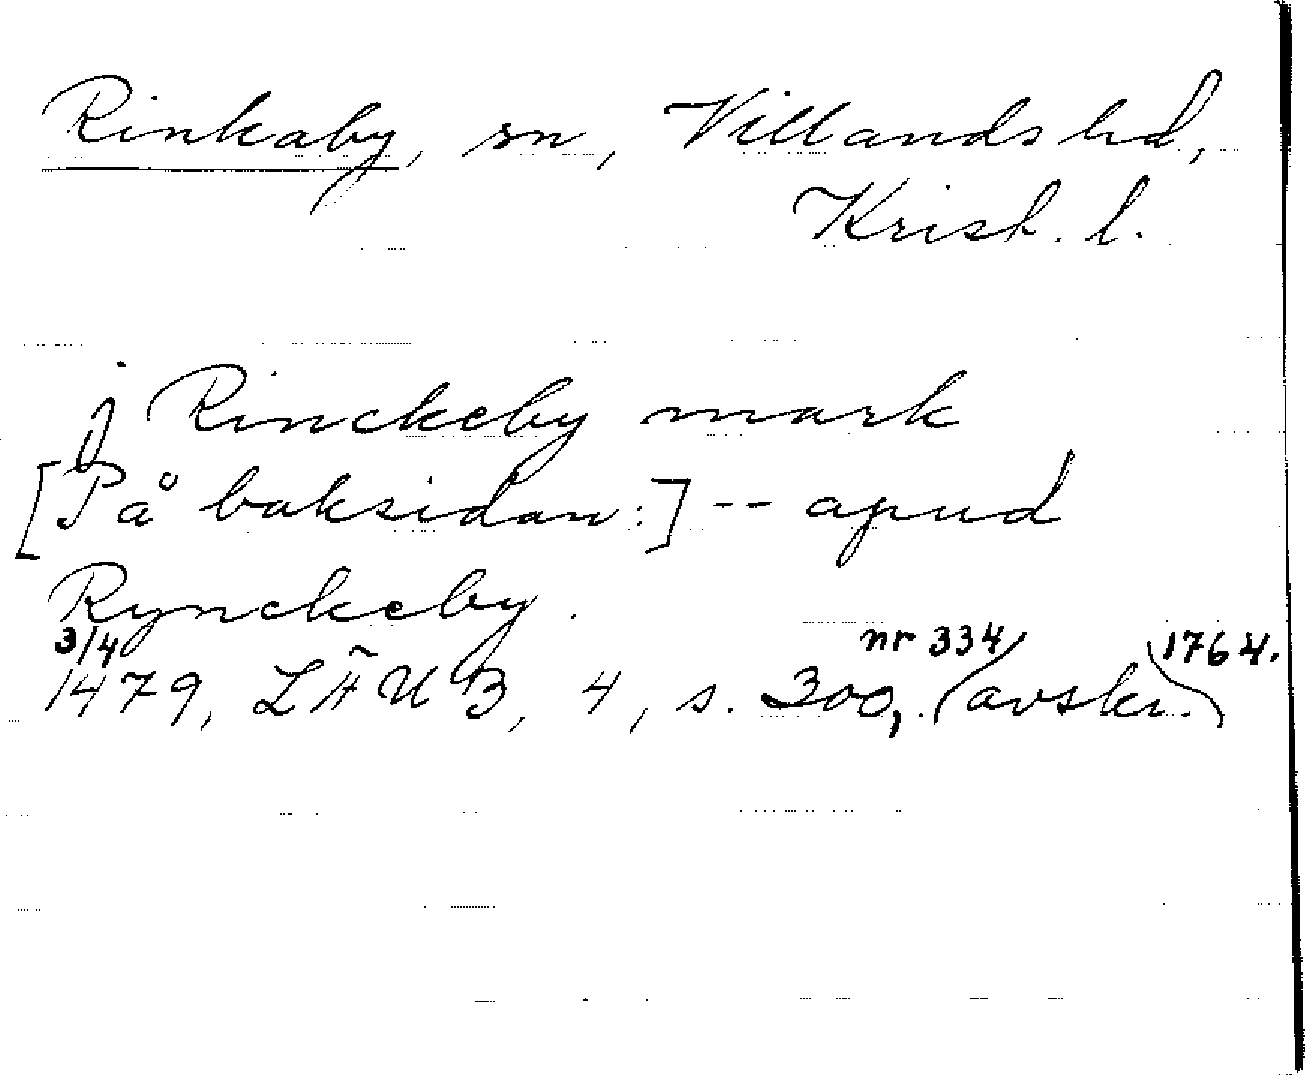 Rinkaby, sn, Villands hd,
Krist. l.
j Rinckeby mark
[På baksidan:] -- apud
Rynckeby.
3/4 nr 334 1764.
1479, LÄUB, 4, s. 300, (avskr.)